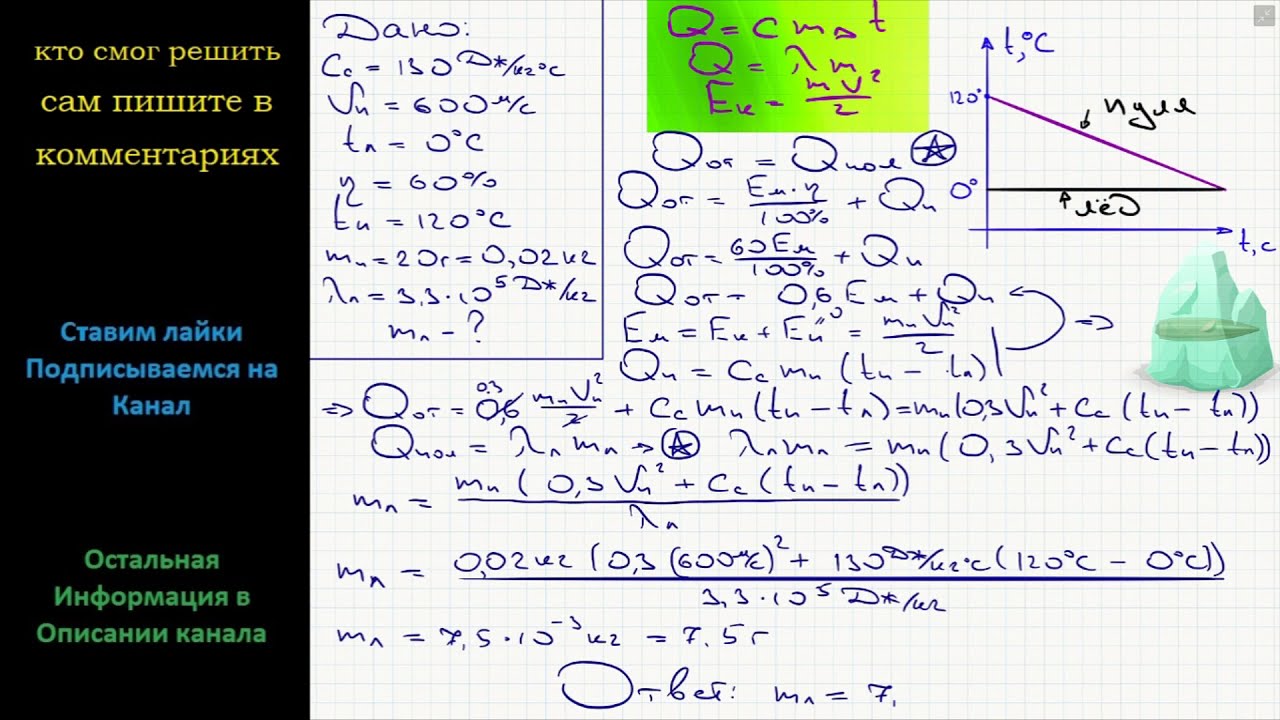 кто смог решить
сам пишите в
комментариях
Ставим лайки
Подписываемся на
Канал
Остальная
Информация в
Описании канала
Дано:
Cс = 130 Дж/кг°C
Vп = 600 м/с
tл = 0°C
η = 60%
tп = 120°C
mп = 20г = 0,02 кг
λл = 3,3·10⁵ Дж/кг
mл - ?
Q = c m Δt
Q = λm
Eк = mV²/2
Qот = Qпол ☆
Qот = Eм·η/100% + Qп
Qот = 60Eм/100% + Qп
Qот = 0,6Eм + Qп
Eм = Eк + Eп"⁰ = mпVп²/2
Qп = Cс mп (tп - tл) =>
t,°C
120°
пуля
0°
лёд
t, с
=> Qот = 0,6 0.3 mпVп²/2 + Cс mп (tп - tл) = mп(0,3Vп² + Cс (tп - tл))
Qпол = λл mл → ☆ λл mл = mп (0,3Vп² + Cс(tп - tл))
mл = mп (0,3Vп² + Cс (tп - tл))/λл
mл = 0,02кг (0,3 (600м/с)² + 130 Дж/кг°C (120°C - 0°C))/3,3·10⁵ Дж/кг
mл = 7,5·10⁻³ кг = 7.5 г
Ответ: mл = 7,